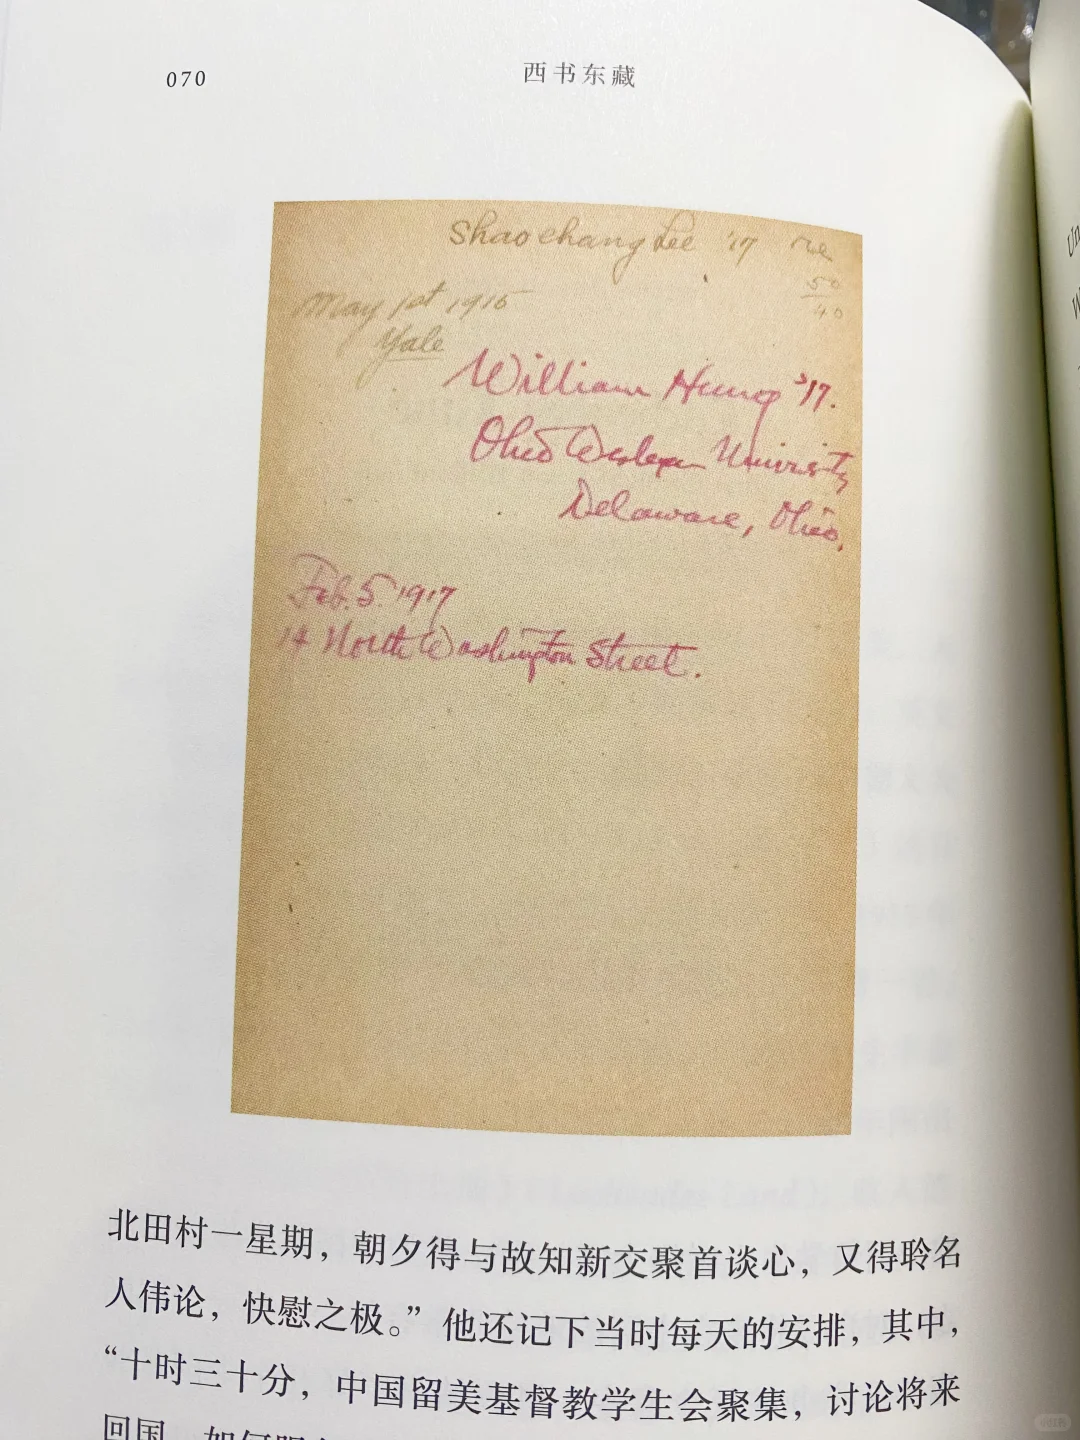 070
西书东藏
Shao chang Lee '17
50
40
May 1st 1915
Yale
William Hung '17.
Ohio Wesleyan University
Delaware, Ohio.
Feb. 5. 1917
14 North Washington Street.
北田村一星期，朝夕得与故知新交聚首谈心，又得聆名
人伟论，快慰之极。”他还记下当时每天的安排，其中，
“十时三十分，中国留美基督教学生会聚集，讨论将来
回国，如何